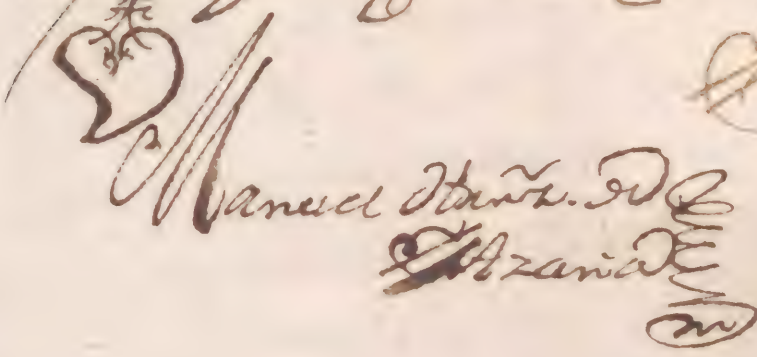 Manuel Ibañz. de
Azaña